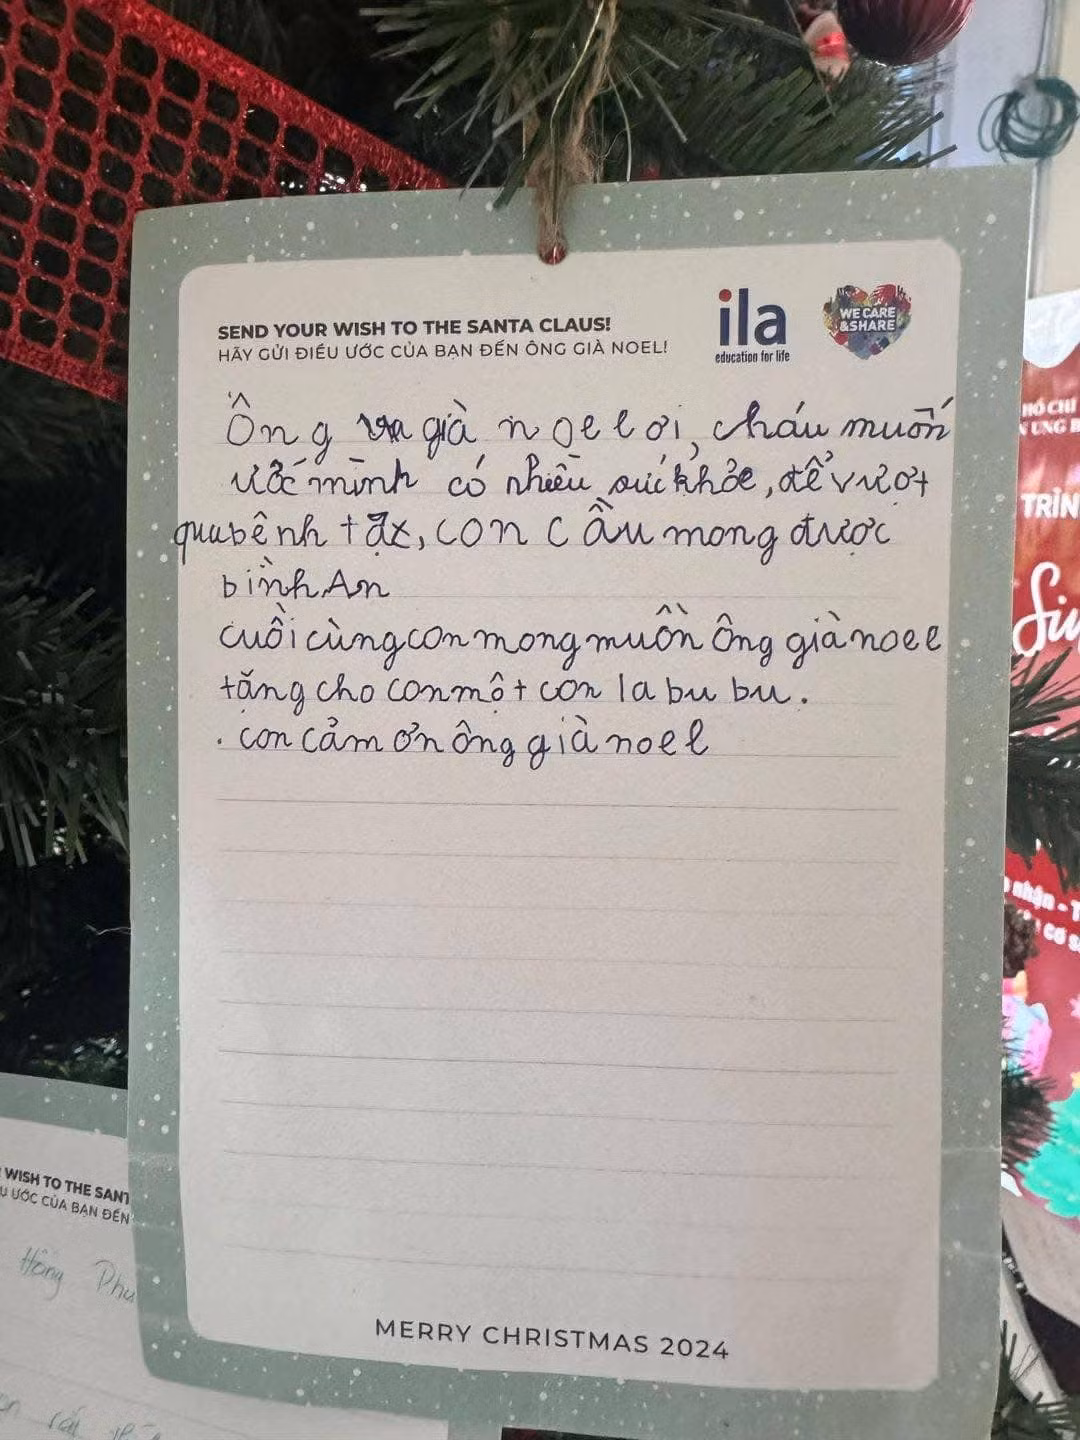 SEND YOUR WISH TO THE SANTA CLAUS!
HÃY GỬI ĐIỀU ƯỚC CỦA BẠN ĐẾN ÔNG GIÀ NOEL!
ila
education for life
WE CARE
&SHARE
Ông già noel ơi, cháu muốn
ước mình có nhiều sức khỏe, để vượt
qua bệnh tật, con cầu mong được
bình An
cuối cùng con mong muốn ông già noel
tặng cho con một con la bu bu.
. con cảm ơn ông già noel
MERRY CHRISTMAS 2024
WISH TO THE SANT
U ƯỚC CỦA BẠN ĐẾN
Hồng Phu
HỒ CHÍ
TRÌN
nhận - T
cơ s